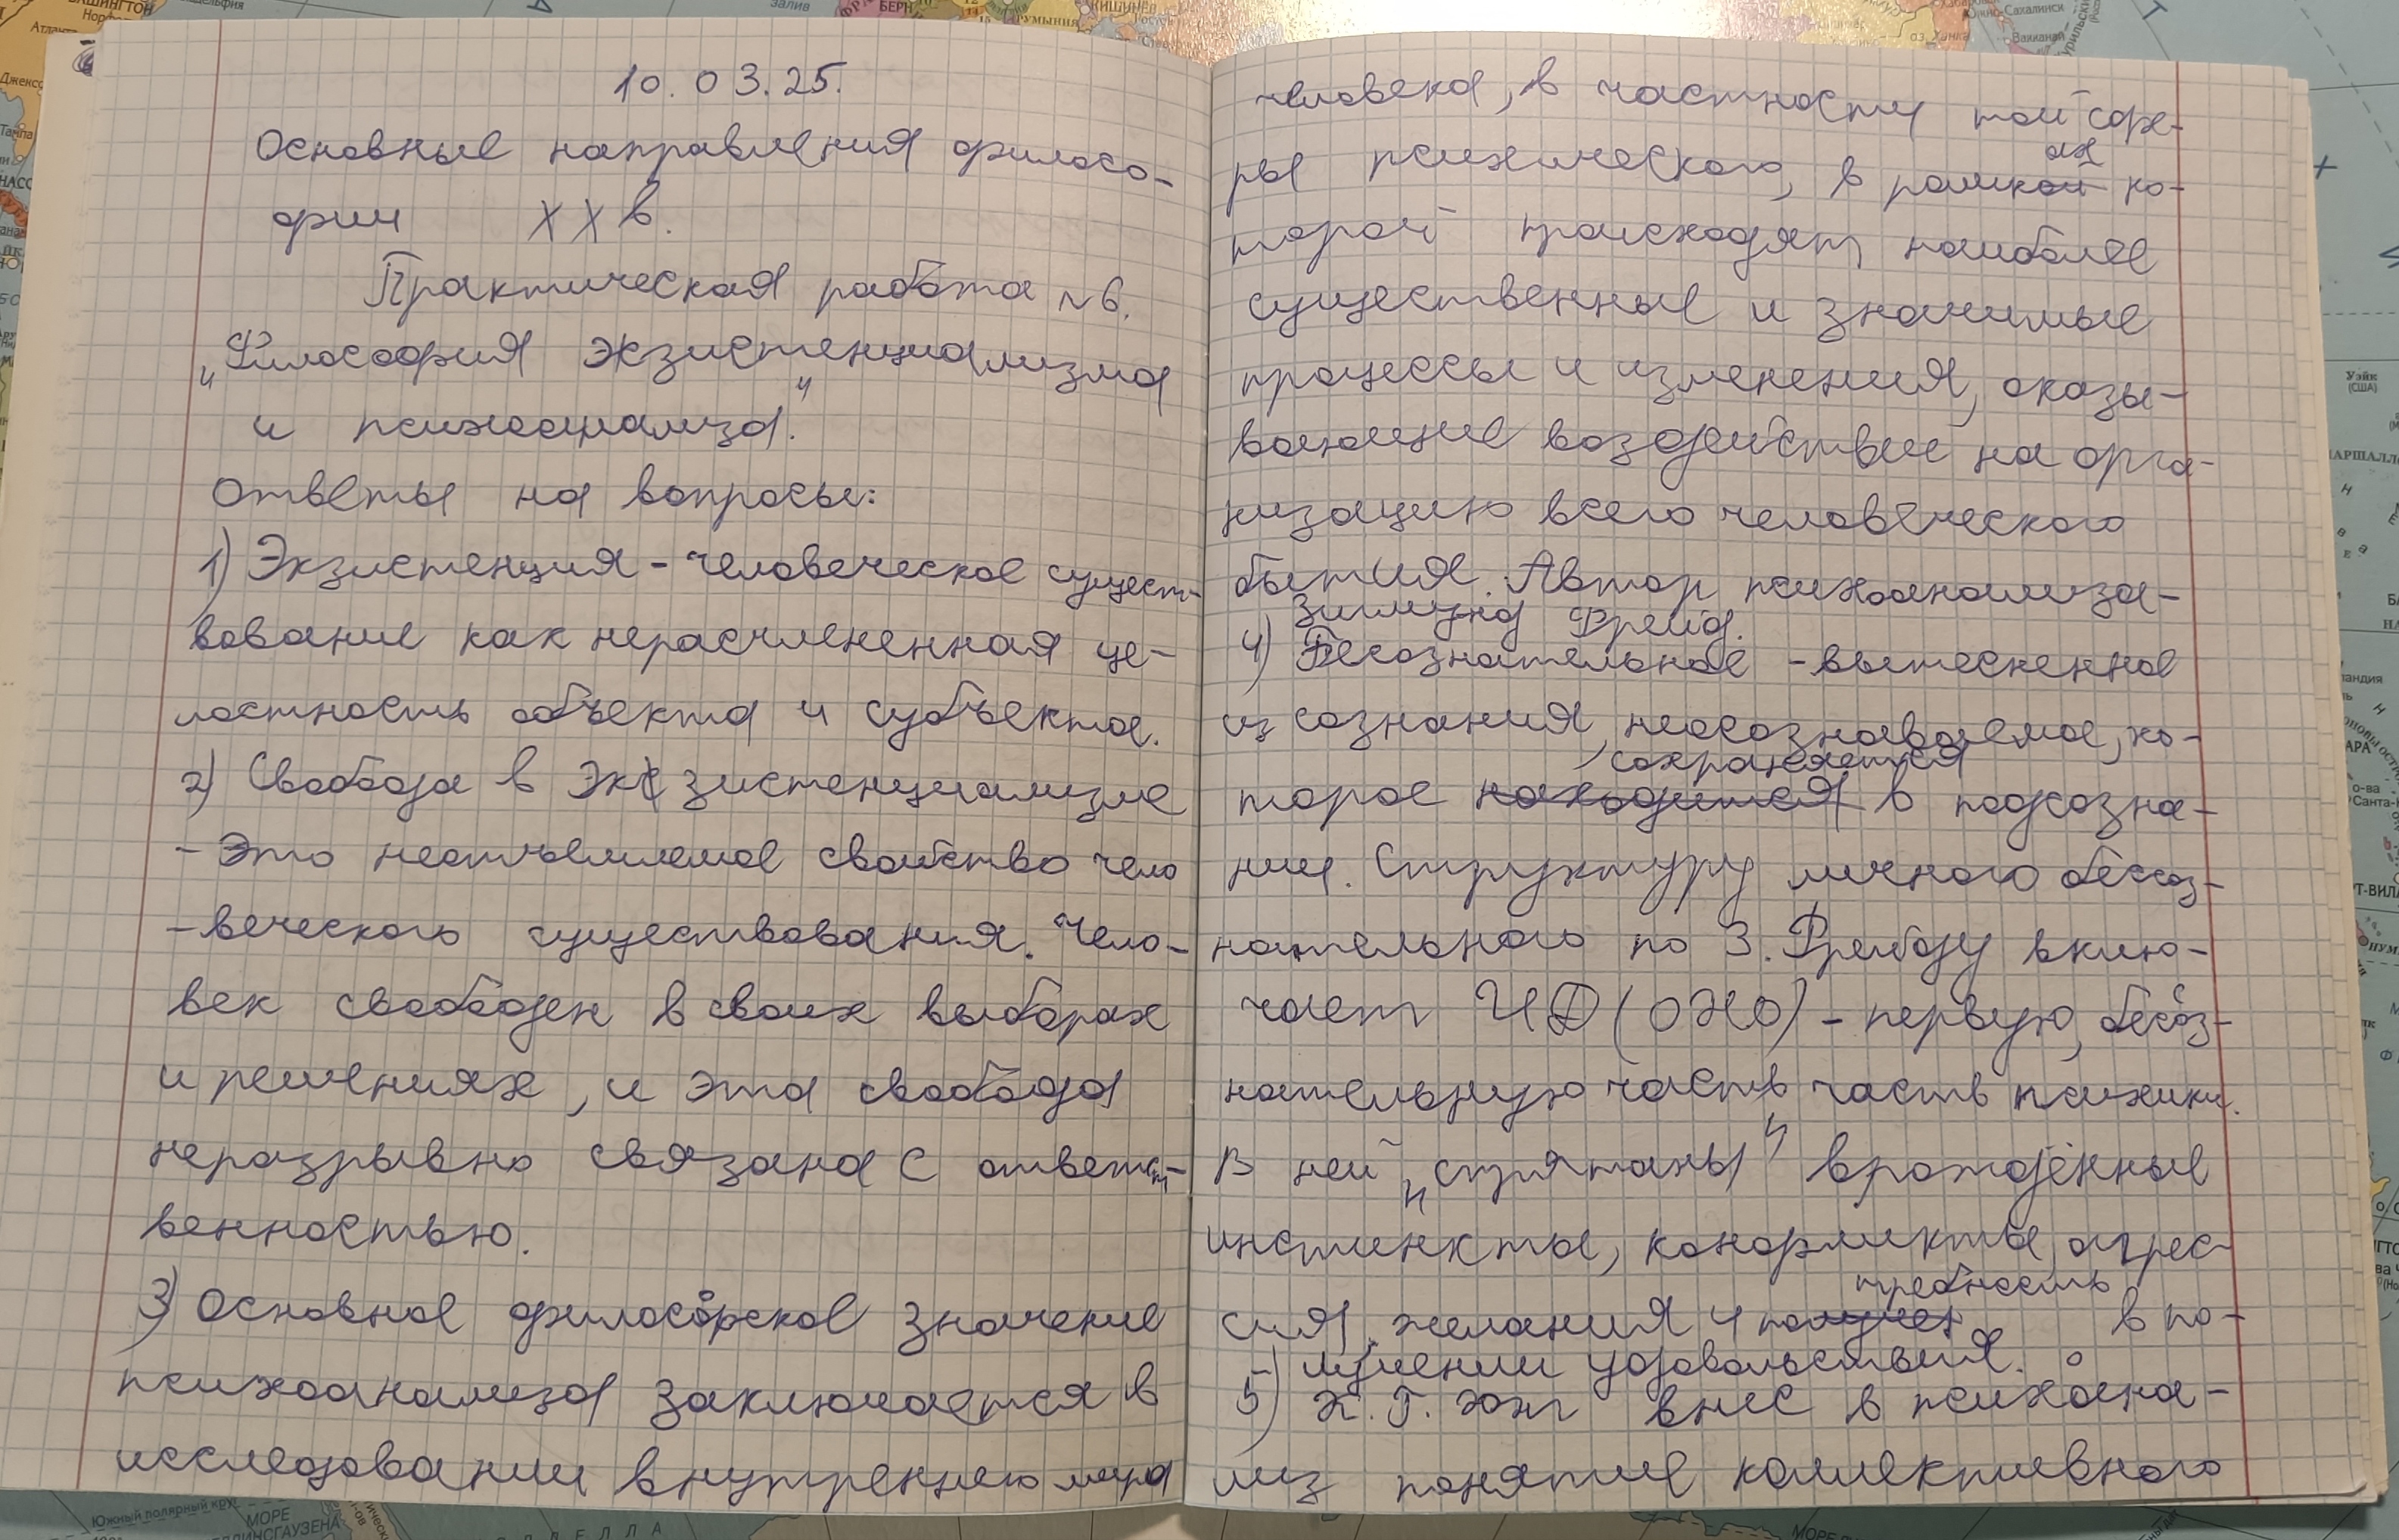 10.03.25.
Основные направления филосо-
фии XX в.
Практическая работа №6.
„Философия экзистенциализма
и психоанализа."
Ответы на вопросы:
1) Экзистенция - человеческое сущест-
вование как нерасчлененная це-
лостность объекта и субъекта.
2) Свобода в экзистенциализме
- Это неотъемлемое свойство чело
-веческого существования. Чело-
век свободен в своих выборах
и решениях, и эта свобода
неразрывно связана с ответст-
венностью.
3) Основное философское значение
психоанализа заключается в
исследовании внутреннего мира
человека, в частности той сфе-
ры психического, в рамках ко-
торой происходят наиболее
существенные и значимые
процессы и изменения, оказы-
вающие воздействие на орга-
низацию всего человеческого
бытия. Автор психоанализа-
Зигмунд Фрейд.
4) Бесознательное - вытесненное
из сознания, неосознаваемое, ко-
торое находится сохраняется в подсозна-
нии. Структуру личного бессоз-
нательного по З. Фрейду вклю-
чает ИД (ОНО) - первую, бессоз-
нательную часть часть психики.
В ней „спрятаны" врождённые
инстинкты, конфликты, агрес-
сия, желания и требность в по-
лучении удовольствия.
5) К. Г. Юнг внёс в психоана-
лиз понятие коллективного
НАСС
Тампа
залив
БЕРН
РУМЫНИЯ
КИШИНЁВ
Южно-Сахалинск
оз. Ханка
Ваккана
Уэйк
(США)
Южный полярный круг
МОРЕ